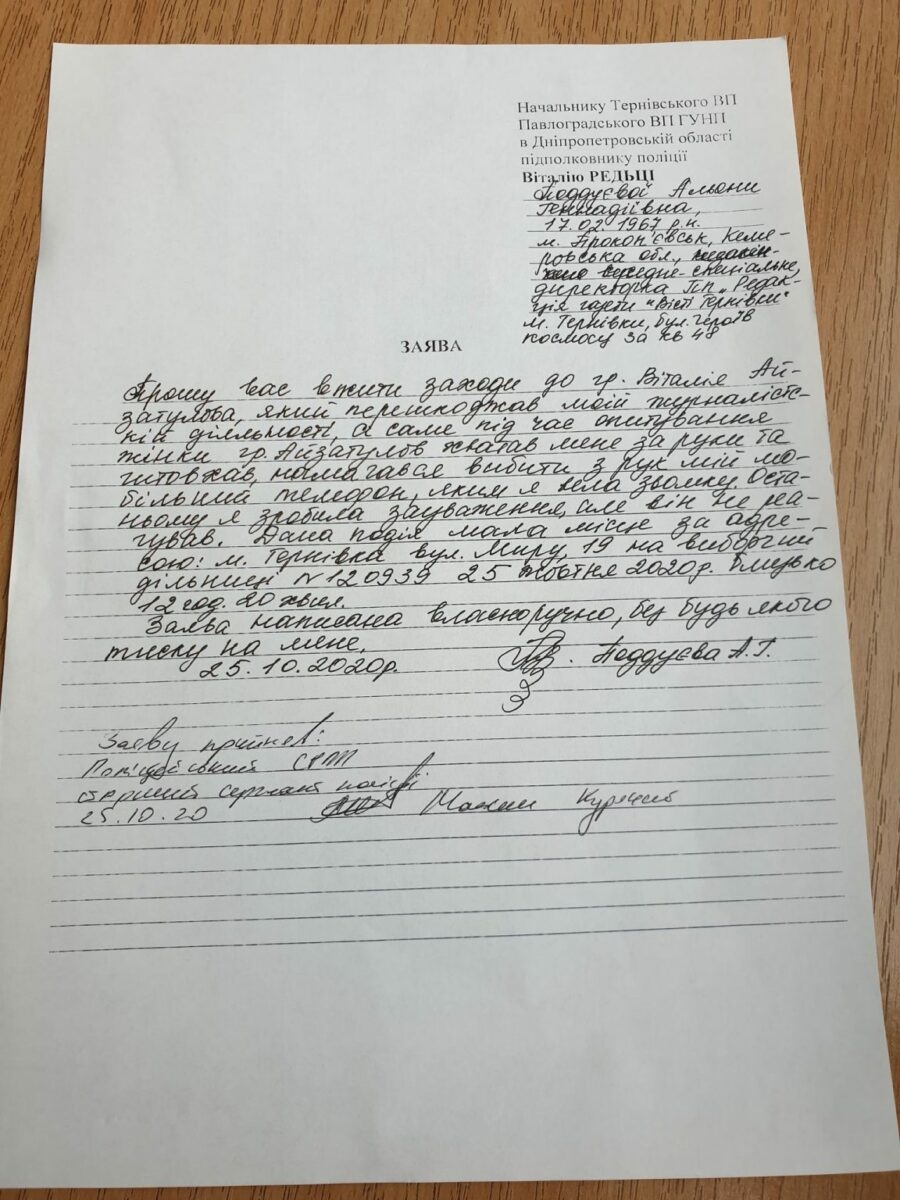 Начальнику Тернівського ВП
Павлоградського ВП ГУНП
в Дніпропетровській області
підполковнику поліції
Віталію РЕДЬЦІ
Поддуєвої Альони
Геннадіївна,
17.02.1967 р.н.
м. Прокоп'євськ, Кеме-
ровська обл.,
середнє-спеціальне,
директорка ПП „Редак-
ція газети "Вісті Тернівки"
м. Тернівки, бул. Героїв
космосу 3а кв 48
ЗАЯВА
Прошу вас вжити заходи до гр. Віталія Ай-
затулова, який перешкоджав моїй журналістс-
кій діяльності, а саме під час опитування
жінки гр. Айзатулов хватав мене за руки та
штовхав, намагався вибити з рук мій мо-
більний телефон, яким я вела зйомку. Оста-
ньому я зробила зауваження, але він не реа-
гував. Дана подія мала місце за адре-
сою: м. Тернівка вул. Миру, 19 на виборчій
дільниці №120939 25 жовтня 2020р. близько
12 год. 20 хвил.
Заява написана власноручно, без будь якого
тиску на мене.
25.10.2020р. Поддуєва А.Г.
Заяву прийняв:
Поліцейський СРПП
старший сержант поліції
25.10.20 Максим